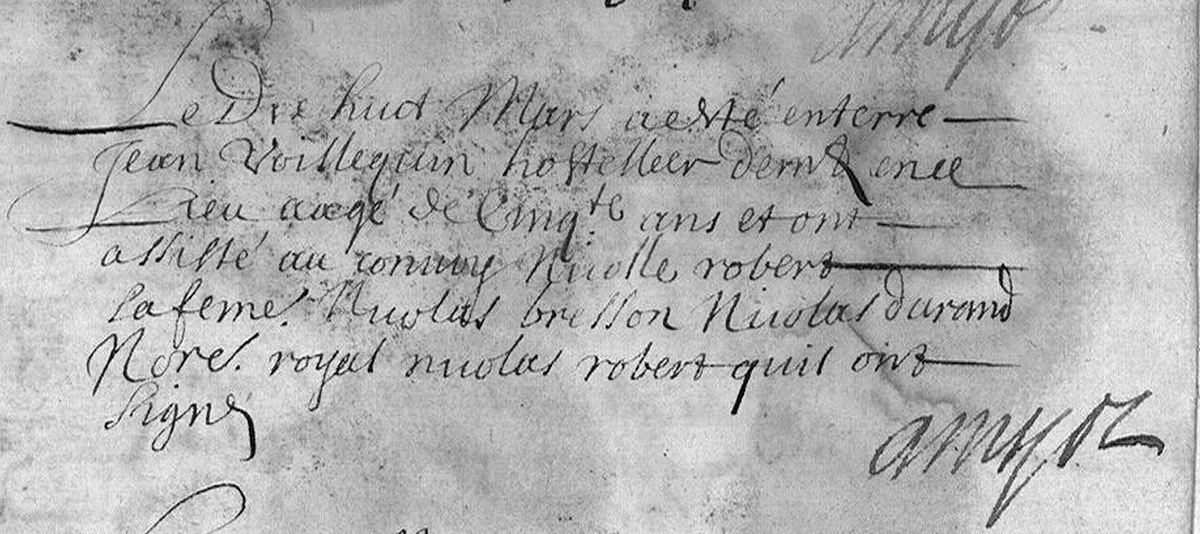 amyot
Le Dix huit Mars a esté enterre
Jean Voillequin hostellier demt ence
Lieu aagé de Cinqte ans et ont
assisté au convoy Nicolle robert
sa feme. Nicolas bresson Nicolas durand
Nore. royal nicolas robert quil ont
signé
amyot